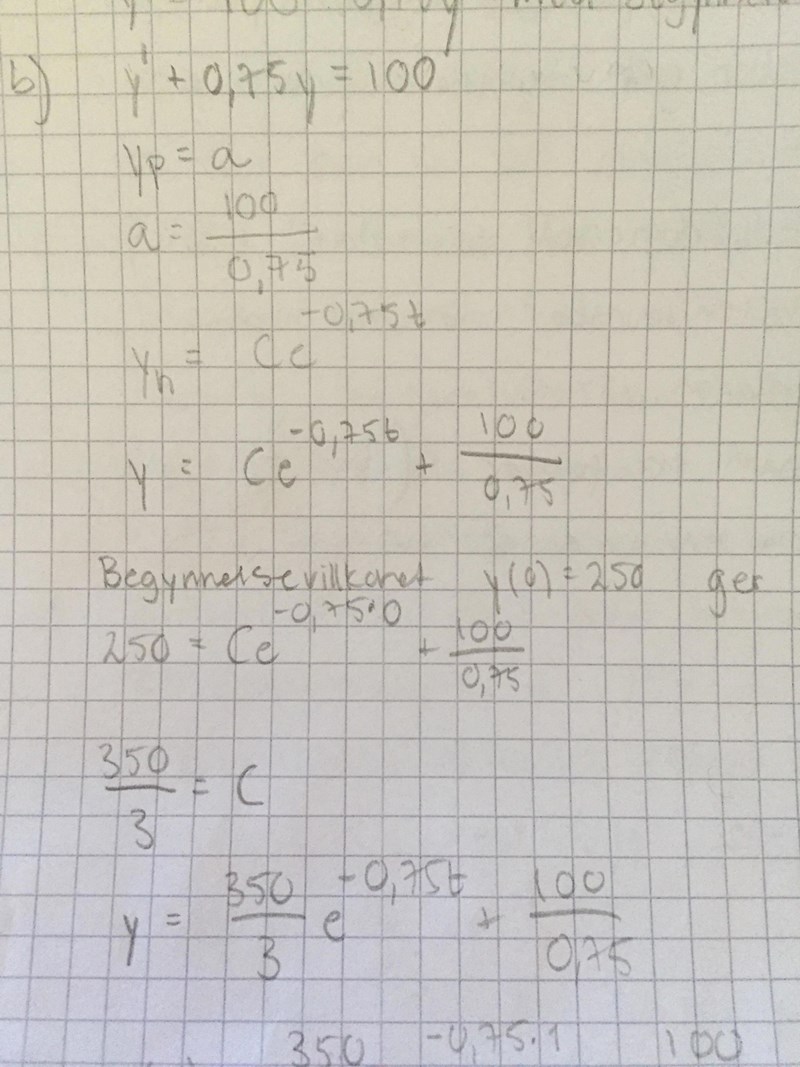 b) y' + 0,75y = 100
yp = a
a = 100/0,75
yh = Ce^-0,75t
y = Ce^-0,75t + 100/0,75
Begynnelsevillkoret y(0) = 250 ger
250 = Ce^-0,75·0 + 100/0,75
350/3 = C
y = 350/3 e^-0,75t + 100/0,75
350 -0,75·1 100